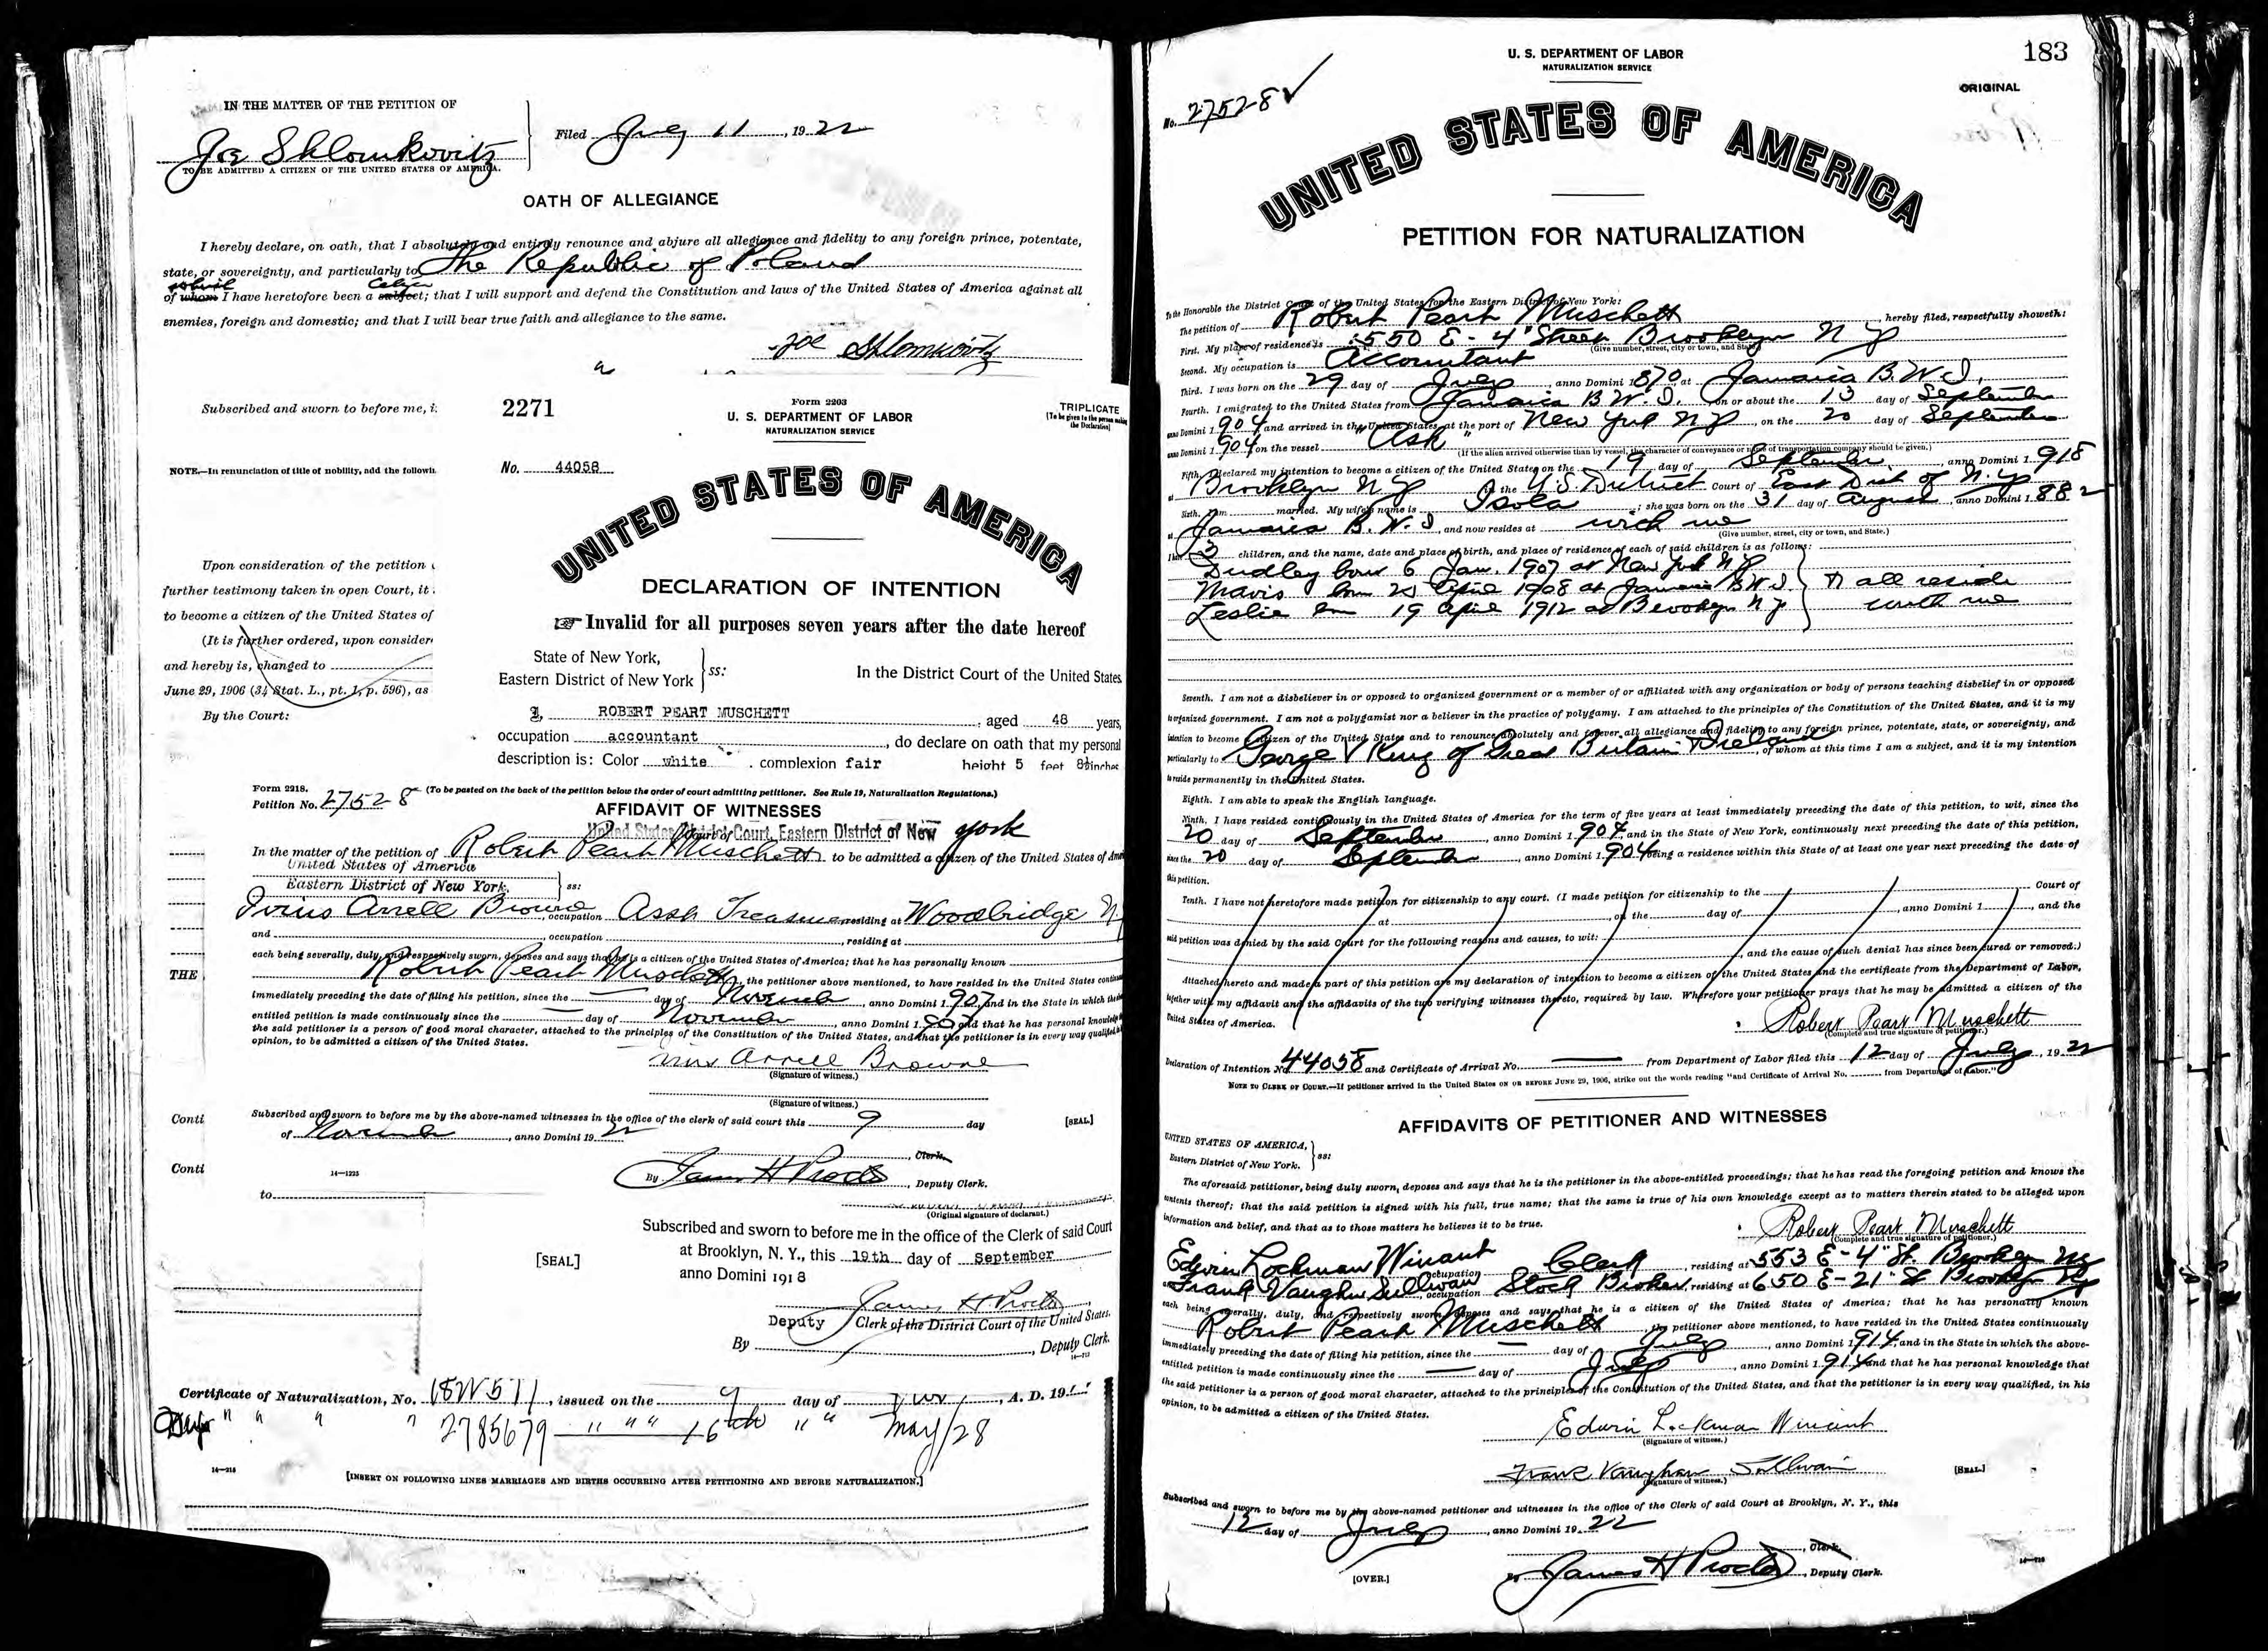 IN THE MATTER OF THE PETITION OF
Joe Shlomkovitz
TO BE ADMITTED A CITIZEN OF THE UNITED STATES OF AMERICA.
Filed July 11, 1922
OATH OF ALLEGIANCE
I hereby declare, on oath, that I absolutely and entirely renounce and abjure all allegiance and fidelity to any foreign prince, potentate,
state, or sovereignty, and particularly to the Republic of Poland
of whom I have heretofore been a subject; that I will support and defend the Constitution and laws of the United States of America against all
enemies, foreign and domestic; and that I will bear true faith and allegiance to the same.
Joe Shlomkovitz
Subscribed and sworn to before me, i
NOTE.—In renunciation of title of nobility, add the followin
Upon consideration of the petition
further testimony taken in open Court, it
to become a citizen of the United States of
(It is further ordered, upon consider
and hereby is, changed to
June 29, 1906 (34 Stat. L., pt. 1, p. 596), as
By the Court:
THE
Conti
Conti
to
2271
Form 2203
U. S. DEPARTMENT OF LABOR
NATURALIZATION SERVICE
TRIPLICATE
(To be given to the person making
the Declaration)
No. 44058
UNITED STATES OF AMERICA
DECLARATION OF INTENTION
☞ Invalid for all purposes seven years after the date hereof
State of New York,
Eastern District of New York
ss:
In the District Court of the United States
I, ROBERT PEART MUSCHETT, aged 48 years,
occupation accountant, do declare on oath that my personal
description is: Color white, complexion fair height 5 feet 8½ inches
Form 2218.
Petition No. 27528
(To be pasted on the back of the petition below the order of court admitting petitioner. See Rule 19, Naturalization Regulations.)
AFFIDAVIT OF WITNESSES
United States District Court, Eastern District of New York
In the matter of the petition of Robert Peart Muschett to be admitted a citizen of the United States of Ame
United States of America
Eastern District of New York,
ss:
Arrell Browne, occupation Asst Treasurer residing at Woodbridge N
and, occupation, residing at
each being severally, duly, and respectively sworn, deposes and says that he is a citizen of the United States of America; that he has personally known
Robert Peart Muschett, the petitioner above mentioned, to have resided in the United States contin
immediately preceding the date of filing his petition, since the — day of November, anno Domini 1907 and in the State in which the
entitled petition is made continuously since the — day of November, anno Domini 1907 and that he has personal knowledge
the said petitioner is a person of good moral character, attached to the principles of the Constitution of the United States, and that the petitioner is in every way qualified, in
opinion, to be admitted a citizen of the United States.
Arrell Browne
(Signature of witness.)
(Signature of witness.)
Subscribed and sworn to before me by the above-named witnesses in the office of the clerk of said court this 9 day
of November, anno Domini 1922
[SEAL]
Clerk.
By James H Proctor, Deputy Clerk.
14—1225
(Original signature of declarant.)
Subscribed and sworn to before me in the office of the Clerk of said Court
at Brooklyn, N. Y., this 19th day of September
anno Domini 1918
[SEAL]
James H Proctor
Deputy Clerk of the District Court of the United States.
By, Deputy Clerk.
14—713
Certificate of Naturalization, No., issued on the 9 day of Nov, A. D. 19
" " " " 2785679 " " " 16th " " May/28
14—218
[INSERT ON FOLLOWING LINES MARRIAGES AND BIRTHS OCCURRING AFTER PETITIONING AND BEFORE NATURALIZATION.]
U. S. DEPARTMENT OF LABOR
NATURALIZATION SERVICE
183
ORIGINAL
No. 27528 ✓
UNITED STATES OF AMERICA
PETITION FOR NATURALIZATION
To the Honorable the District Court of the United States for the Eastern District of New York:
The petition of Robert Peart Muschett, hereby filed, respectfully showeth:
First. My place of residence is 550 E - 4" Street Brooklyn N Y
(Give number, street, city or town, and State.)
Second. My occupation is Accountant
Third. I was born on the 29 day of July, anno Domini 1870 at Jamaica B. W. I.
Fourth. I emigrated to the United States from Jamaica B. W. I. on or about the 13 day of September
anno Domini 1904 and arrived in the United States at the port of New York N Y, on the 20 day of September
anno Domini 1904 on the vessel "Ask"
(If the alien arrived otherwise than by vessel, the character of conveyance or name of transportation company should be given.)
Fifth. I declared my intention to become a citizen of the United States on the 19 day of September, anno Domini 1918
at Brooklyn N Y in the U.S. District Court of East Dist of N. Y
Sixth. I am married. My wife's name is Isola; she was born on the 31 day of August, anno Domini 1882
at Jamaica B. W. I, and now resides at with me
(Give number, street, city or town, and State.)
I have 3 children, and the name, date and place of birth, and place of residence of each of said children is as follows:
Dudley born 6 Jan. 1907 at New York N Y
Mavis born 25 April 1908 at Jamaica B. W. I. all reside
Leslie born 19 April 1912 at Brooklyn N Y with me
Seventh. I am not a disbeliever in or opposed to organized government or a member of or affiliated with any organization or body of persons teaching disbelief in or opposed
to organized government. I am not a polygamist nor a believer in the practice of polygamy. I am attached to the principles of the Constitution of the United States, and it is my
intention to become a citizen of the United States and to renounce absolutely and forever all allegiance and fidelity to any foreign prince, potentate, state, or sovereignty, and
particularly to George V King of Great Britain & Ireland, of whom at this time I am a subject, and it is my intention
to reside permanently in the United States.
Eighth. I am able to speak the English language.
Ninth. I have resided continuously in the United States of America for the term of five years at least immediately preceding the date of this petition, to wit, since the
20 day of September, anno Domini 1904 and in the State of New York, continuously next preceding the date of this petition,
since the 20 day of September, anno Domini 1904 being a residence within this State of at least one year next preceding the date of
this petition.
Tenth. I have not heretofore made petition for citizenship to any court. (I made petition for citizenship to the Court of
at, on the day of, anno Domini 1, and the
said petition was denied by the said Court for the following reasons and causes, to wit:
, and the cause of such denial has since been cured or removed.)
Attached hereto and made a part of this petition are my declaration of intention to become a citizen of the United States and the certificate from the Department of Labor,
together with my affidavit and the affidavits of the two verifying witnesses thereto, required by law. Wherefore your petitioner prays that he may be admitted a citizen of the
United States of America.
Robert Peart Muschett
(Complete and true signature of petitioner.)
Declaration of Intention No. 44058 and Certificate of Arrival No. — from Department of Labor filed this 12 day of July, 1922
NOTE TO CLERK OF COURT.—If petitioner arrived in the United States ON OR BEFORE JUNE 29, 1906, strike out the words reading "and Certificate of Arrival No. from Department of Labor."
AFFIDAVITS OF PETITIONER AND WITNESSES
UNITED STATES OF AMERICA,
Eastern District of New York.
ss:
The aforesaid petitioner, being duly sworn, deposes and says that he is the petitioner in the above-entitled proceedings; that he has read the foregoing petition and knows the
contents thereof; that the said petition is signed with his full, true name; that the same is true of his own knowledge except as to matters therein stated to be alleged upon
information and belief, and that as to those matters he believes it to be true.
Robert Peart Muschett
(Complete and true signature of petitioner.)
Edwin Lockman Winant occupation Clerk, residing at 553 E - 4" St. Brooklyn NY
Frank Vaughn Sullivan, occupation Stock Broker, residing at 650 E - 21" St Brooklyn NY
each being severally, duly, and respectively sworn, deposes and says that he is a citizen of the United States of America; that he has personally known
Robert Peart Muschett, the petitioner above mentioned, to have resided in the United States continuously
immediately preceding the date of filing his petition, since the — day of July, anno Domini 1914, and in the State in which the above-
entitled petition is made continuously since the — day of July, anno Domini 1914 and that he has personal knowledge that
the said petitioner is a person of good moral character, attached to the principles of the Constitution of the United States, and that the petitioner is in every way qualified, in his
opinion, to be admitted a citizen of the United States.
Edwin Lockman Winant
(Signature of witness.)
Frank Vaughan Sullivan
(Signature of witness.)
[SEAL]
Subscribed and sworn to before me by the above-named petitioner and witnesses in the office of the Clerk of said Court at Brooklyn, N. Y., this
12 day of July, anno Domini 1922
Clerk.
[OVER.]
By James H Proctor, Deputy Clerk.